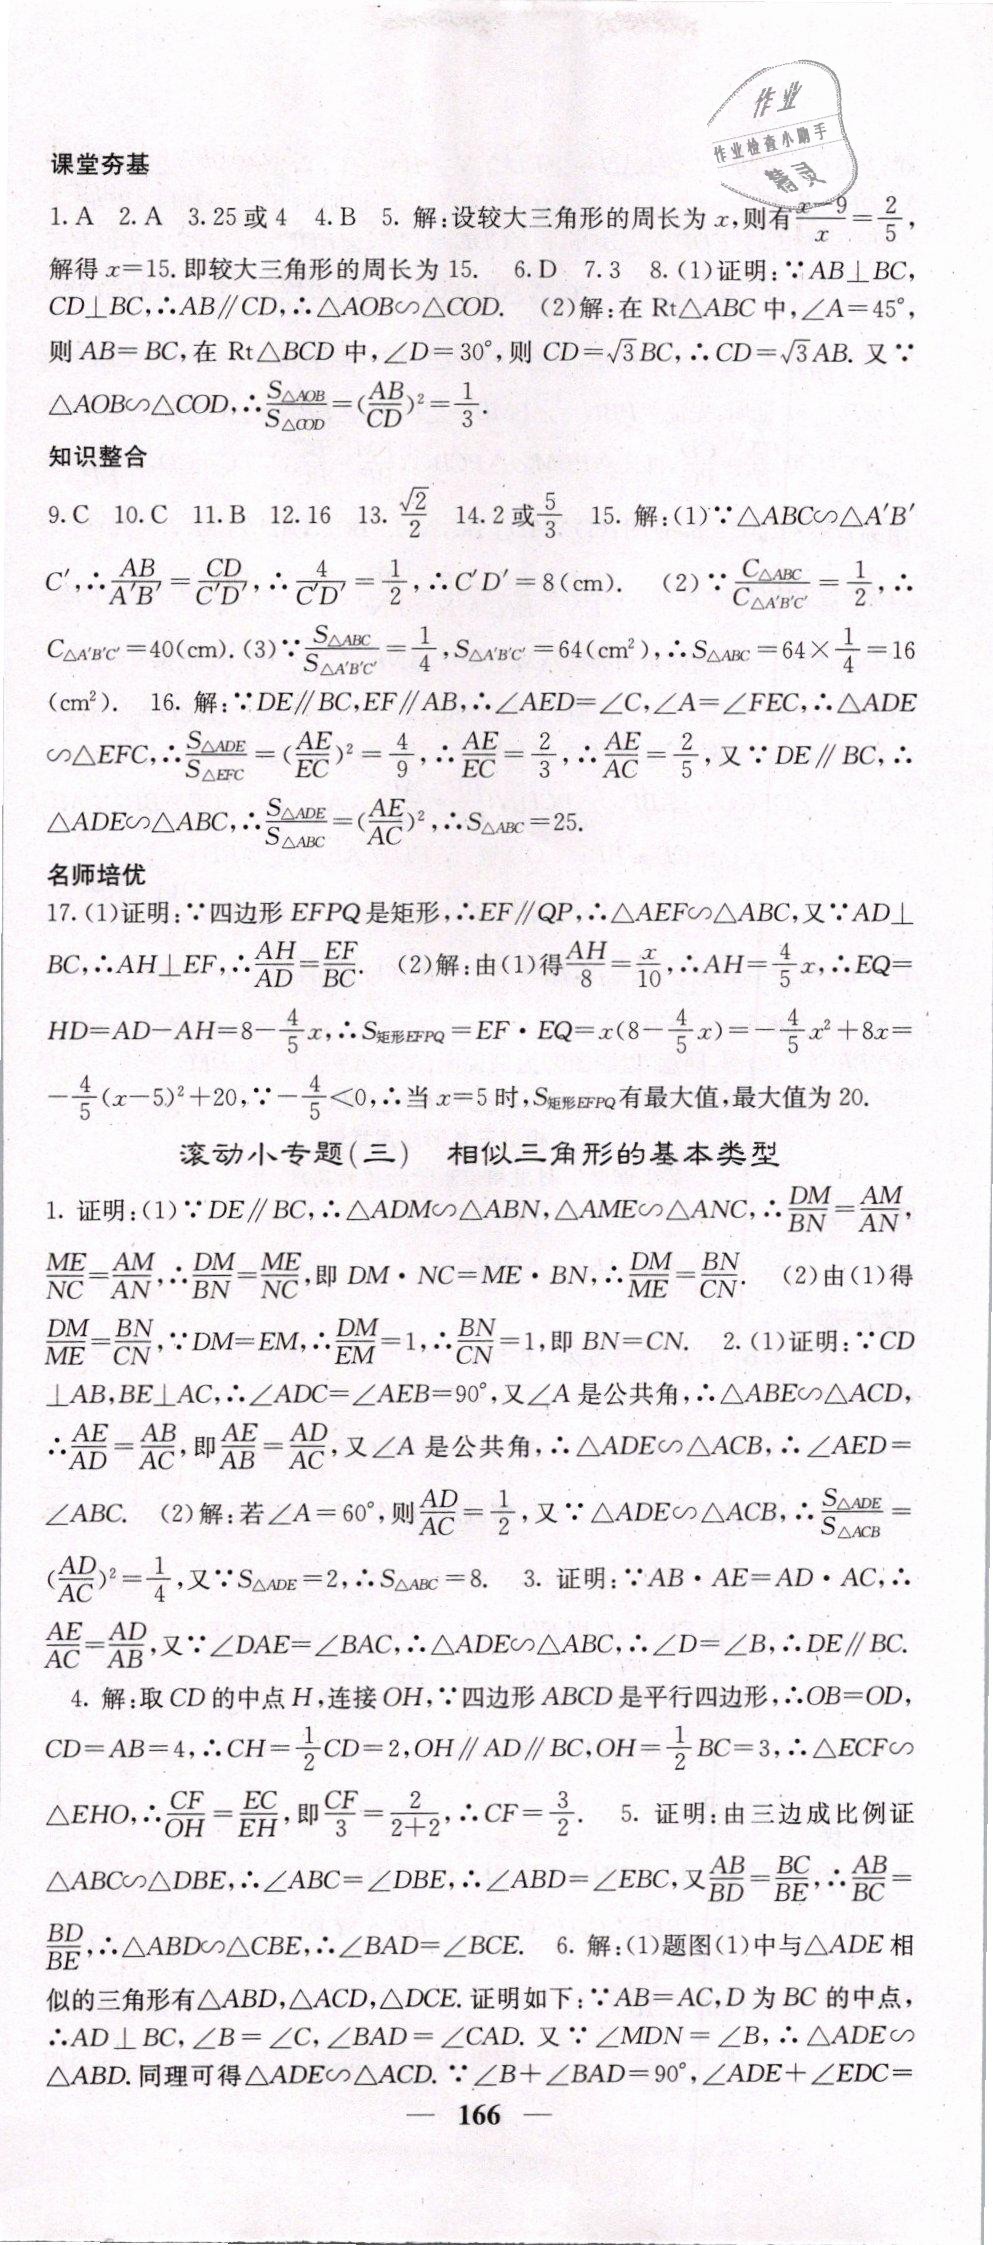 作业
作业检查小助手
精灵
课堂夯基
1. A 2. A 3. 25 或 4 4. B 5. 解:设较大三角形的周长为 x,则有 (x−9)/x = 2/5,
解得 x=15. 即较大三角形的周长为 15. 6. D 7. 3 8. (1)证明:∵AB⊥BC,
CD⊥BC,∴AB∥CD,∴△AOB∽△COD. (2)解:在 Rt△ABC 中,∠A=45°,
则 AB=BC,在 Rt△BCD 中,∠D=30°,则 CD=√3BC,∴CD=√3AB. 又∵
△AOB∽△COD,∴S△AOB/S△COD=(AB/CD)²=1/3.
知识整合
9. C 10. C 11. B 12. 16 13. √2/2 14. 2 或 5/3 15. 解:(1)∵△ABC∽△A′B′
C′,∴AB/A′B′=CD/C′D′,∴4/C′D′=1/2,∴C′D′=8(cm). (2)∵C△ABC/C△A′B′C′=1/2,∴
C△A′B′C′=40(cm). (3)∵S△ABC/S△A′B′C′=1/4,S△A′B′C′=64(cm²),∴S△ABC=64×1/4=16
(cm²). 16. 解:∵DE∥BC,EF∥AB,∴∠AED=∠C,∠A=∠FEC,∴△ADE
∽△EFC,∴S△ADE/S△EFC=(AE/EC)²=4/9,∴AE/EC=2/3,∴AE/AC=2/5,又∵DE∥BC,∴
△ADE∽△ABC,∴S△ADE/S△ABC=(AE/AC)²,∴S△ABC=25.
名师培优
17. (1)证明:∵四边形 EFPQ 是矩形,∴EF∥QP,∴△AEF∽△ABC,又∵AD⊥
BC,∴AH⊥EF,∴AH/AD=EF/BC. (2)解:由(1)得AH/8=x/10,∴AH=4/5x,∴EQ=
HD=AD−AH=8−4/5x,∴S矩形EFPQ=EF·EQ=x(8−4/5x)=−4/5x²+8x=
−4/5(x−5)²+20,∵−4/5<0,∴当 x=5 时,S矩形EFPQ有最大值,最大值为 20.
滚动小专题(三) 相似三角形的基本类型
1. 证明:(1)∵DE∥BC,∴△ADM∽△ABN,△AME∽△ANC,∴DM/BN=AM/AN,
ME/NC=AM/AN,∴DM/BN=ME/NC,即 DM·NC=ME·BN,∴DM/ME=BN/CN. (2)由(1)得
DM/ME=BN/CN,∵DM=EM,∴DM/EM=1,∴BN/CN=1,即 BN=CN. 2. (1)证明:∵CD
⊥AB,BE⊥AC,∴∠ADC=∠AEB=90°,又∠A 是公共角,∴△ABE∽△ACD,
∴AE/AD=AB/AC,即AE/AB=AD/AC,又∠A 是公共角,∴△ADE∽△ACB,∴∠AED=
∠ABC. (2)解:若∠A=60°,则AD/AC=1/2,又∵△ADE∽△ACB,∴S△ADE/S△ACB=
(AD/AC)²=1/4,又∵S△ADE=2,∴S△ABC=8. 3. 证明:∵AB·AE=AD·AC,∴
AE/AC=AD/AB,又∵∠DAE=∠BAC,∴△ADE∽△ABC,∴∠D=∠B,∴DE∥BC.
4. 解:取 CD 的中点 H,连接 OH,∵四边形 ABCD 是平行四边形,∴OB=OD,
CD=AB=4,∴CH=1/2CD=2,OH∥AD∥BC,OH=1/2BC=3,∴△ECF∽
△EHO,∴CF/OH=EC/EH,即CF/3=2/(2+2),∴CF=3/2. 5. 证明:由三边成比例证
△ABC∽△DBE,∴∠ABC=∠DBE,∴∠ABD=∠EBC,又AB/BD=BC/BE,∴AB/BC=
BD/BE,∴△ABD∽△CBE,∴∠BAD=∠BCE. 6. 解:(1)题图(1)中与△ADE 相
似的三角形有△ABD,△ACD,△DCE. 证明如下:∵AB=AC,D 为 BC 的中点,
∴AD⊥BC,∠B=∠C,∠BAD=∠CAD. 又∵∠MDN=∠B,∴△ADE∽
△ABD. 同理可得△ADE∽△ACD. ∵∠B+∠BAD=90°,∠ADE+∠EDC=
— 166 —